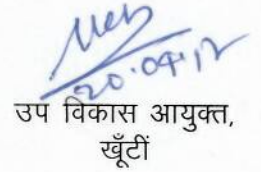 20.04.12
उप विकास आयुक्त,
खूँटीं